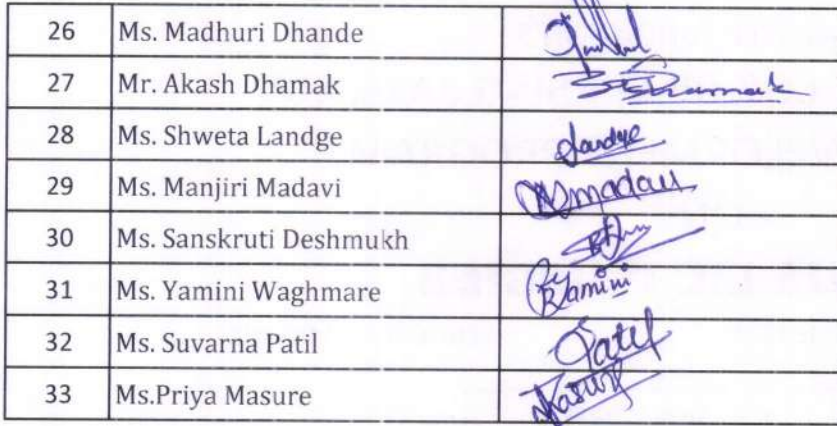 26 Ms. Madhuri Dhande
27 Mr. Akash Dhamak Dhamak
28 Ms. Shweta Landge Landge
29 Ms. Manjiri Madavi Madavi
30 Ms. Sanskruti Deshmukh
31 Ms. Yamini Waghmare Yamini
32 Ms. Suvarna Patil Patil
33 Ms.Priya Masure Masure